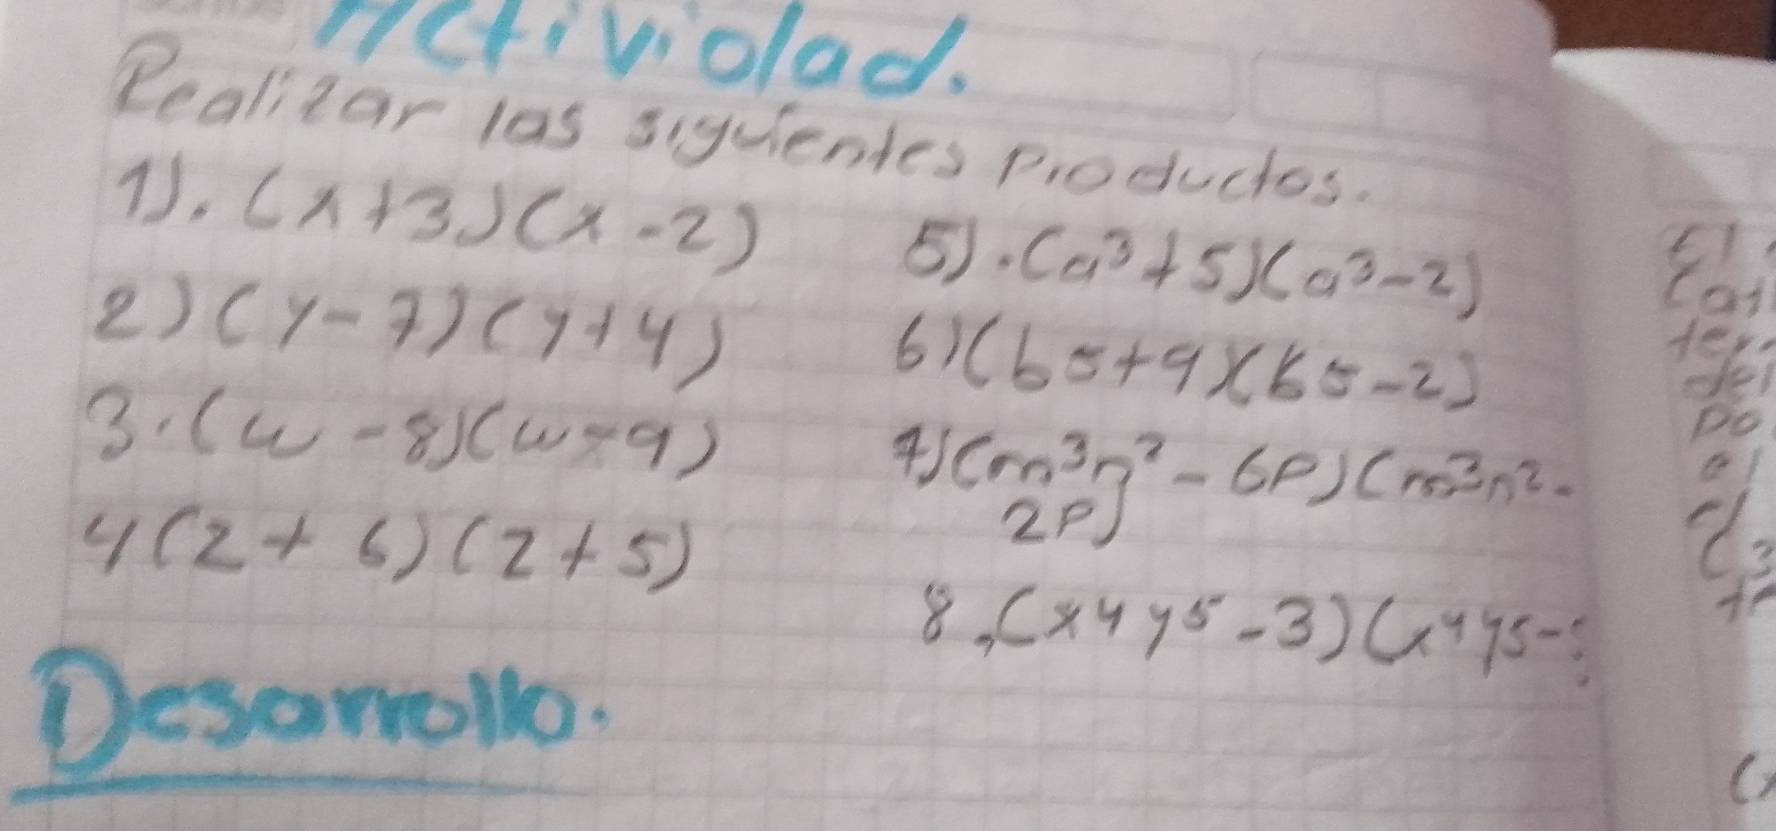 Actividad.
Realizar las siguientes productos.
1). (x+3)(x-2)
2) (y-7)(y+4)
3. (w-8)(w-9)
4 (z+6)(z+5)
5). (a³+5)(a³-2)
6) (b5+9)(b5-2)
7) (m³n²-6p)(m³n²-
2p)
8. (x4y5-3)(x4y5-
Desarrollo.